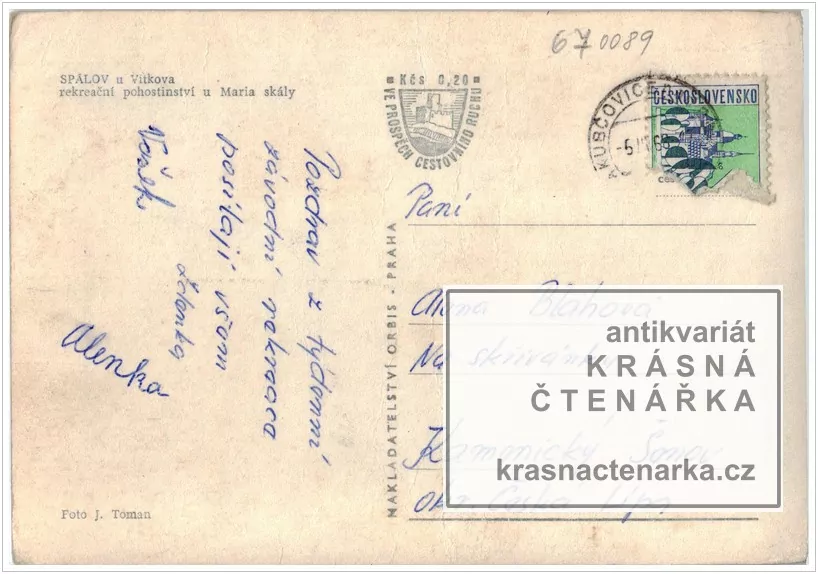 670089
SPÁLOV u Vítkova
rekreační pohostinství u Maria skály
Kčs 0,20
VE PROSPĚCH CESTOVNÍHO RUCHU
ČESKOSLOVENSKO
Pozdrav z týdenní
závodní rekreace
posílají všem
Zdenka
Vašek
Alenka
Paní
Blahová
Kamenický Šenov
okr. Česká Lípa
NAKLADATELSTVÍ ORBIS - PRAHA
Foto J. Toman
antikvariát
KRÁSNÁ
ČTENÁŘKA
krasnactenarka.cz